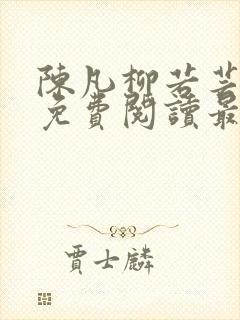 陳凡柳若若
免費閱讀最
賈士麟